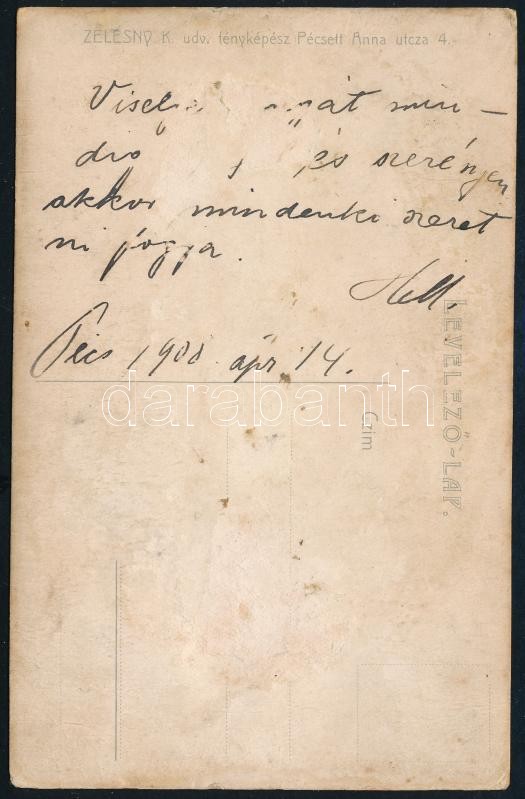 ZELESNY K. udv. fényképész Pécsett Anna utcza 4.-
át min-
és szerényen
akkor mindenki szeret
ni fogja.
Pécs 1900 ápr 14.
LEVELEZŐ-LAP.
Czim
darabanth